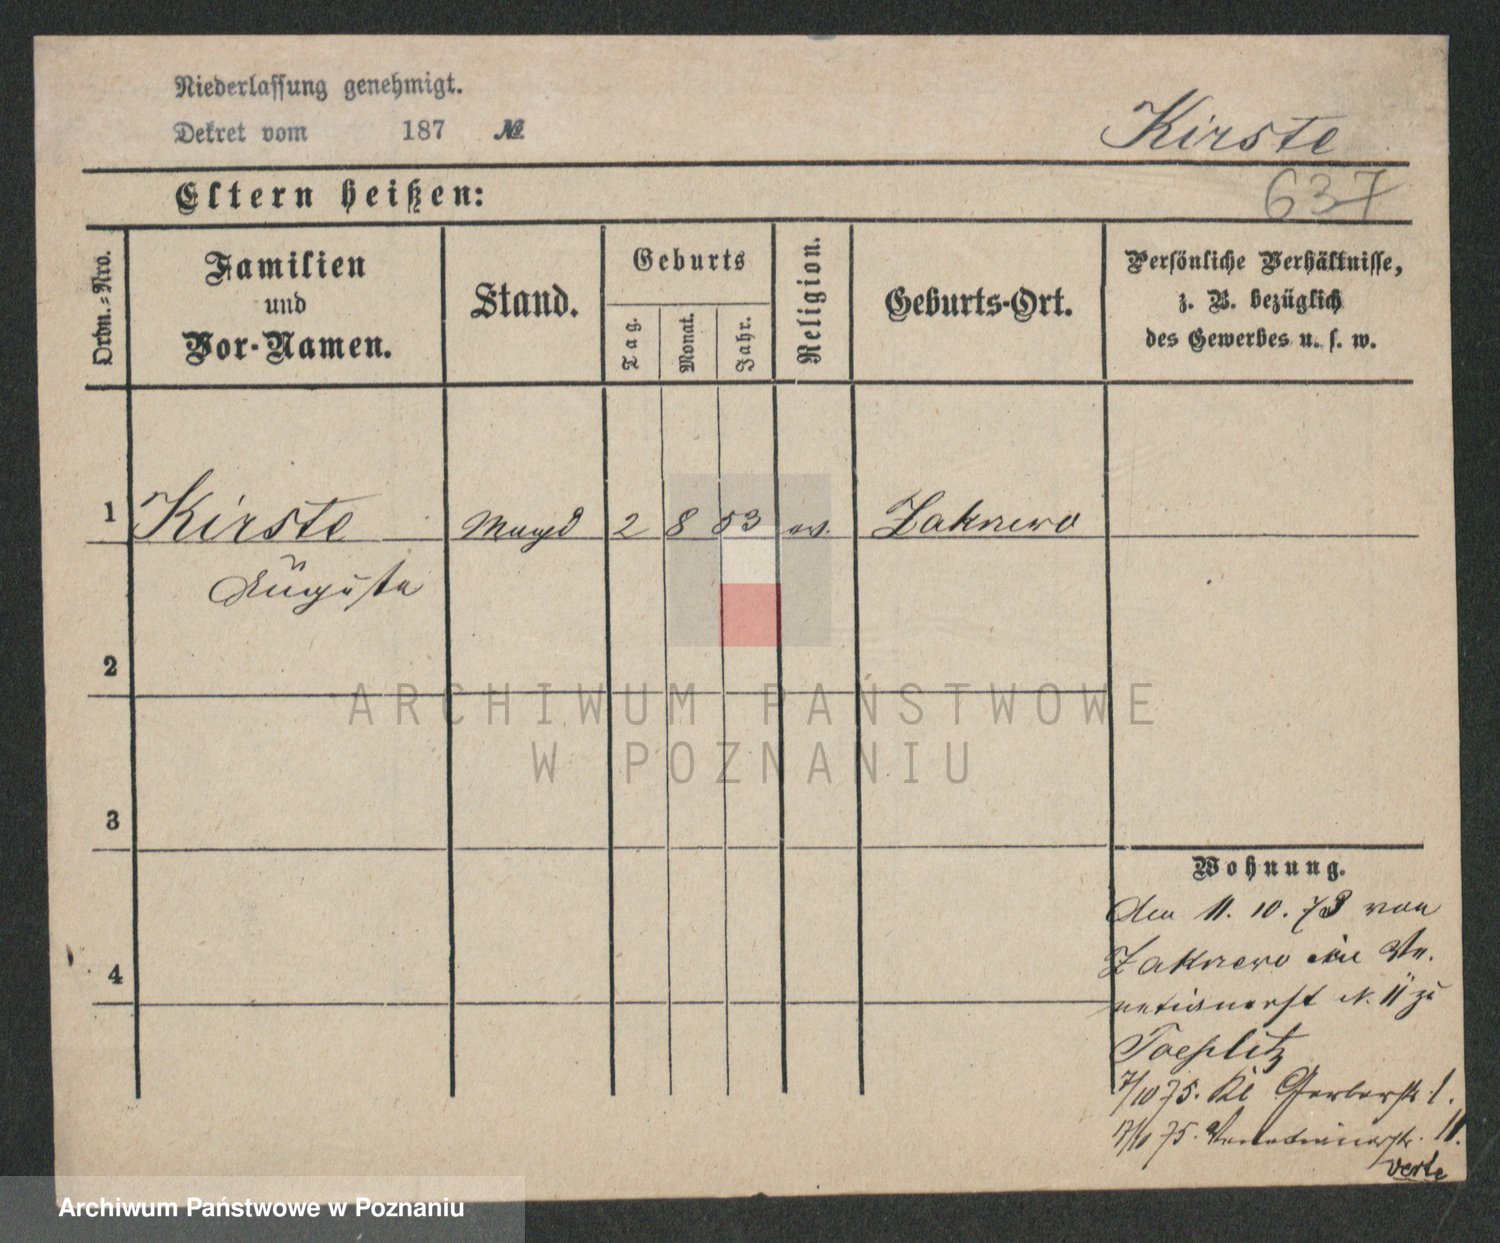 Niederlassung genehmigt.
Dekret vom 187 №
Kirste
637
Eltern heißen:
Ordn.-Nro.
Familien
und
Vor-Namen.
Stand.
Geburts
Tag.
Monat.
Jahr.
Religion.
Geburts-Ort.
Persönliche Verhältnisse,
z. B. bezüglich
des Gewerbes u. s. w.
1 Kirste Magd 2 8 53 ev. Zakrzewo
Auguste
2
ARCHIWUM PAŃSTWOWE
W POZNANIU
3
Wohnung.
Den 11. 10. 73 von
Zakrzewo Ve-
netianerst N. 11 zu
Toeplitz
7/10 75. Kl Gerberstr. 1.
17/10 75. Venetianerstr. 11.
verte
4
Archiwum Państwowe w Poznaniu